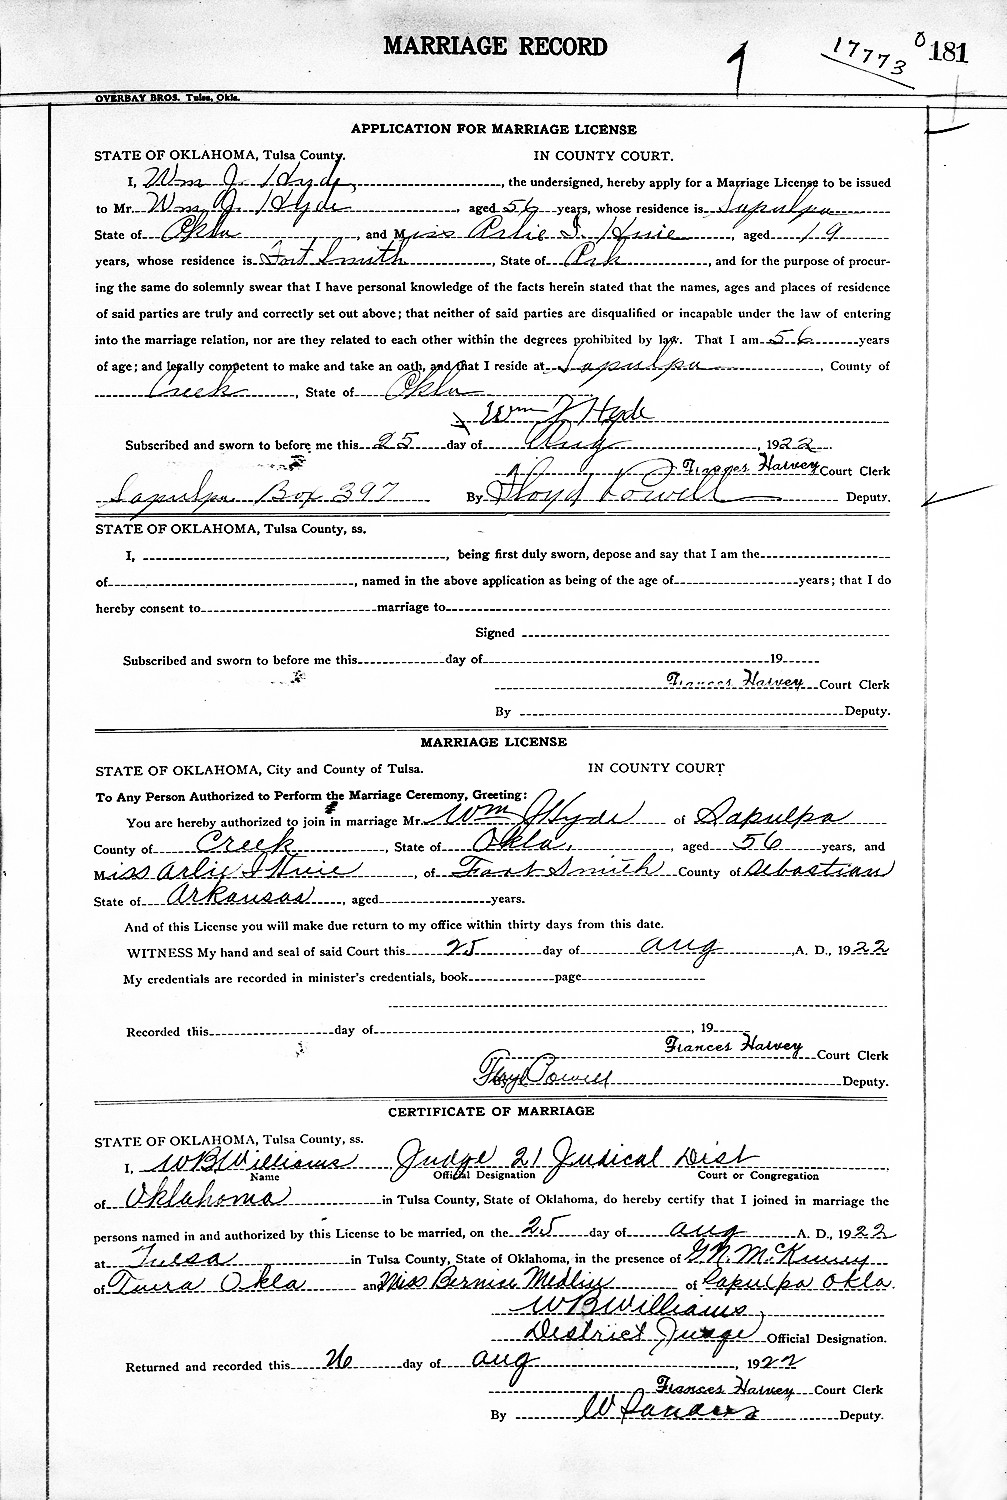 MARRIAGE RECORD
17773
181
OVERBAY BROS. Tulsa, Okla.
APPLICATION FOR MARRIAGE LICENSE
STATE OF OKLAHOMA, Tulsa County. IN COUNTY COURT.
I, Wm J. Hyde, the undersigned, hereby apply for a Marriage License to be issued
to Mr. Wm J. Hyde, aged 56 years, whose residence is Sapulpa
State of Okla, and Miss Arlie I. Huie, aged 19
years, whose residence is Fort Smith, State of Ark, and for the purpose of procur-
ing the same do solemnly swear that I have personal knowledge of the facts herein stated that the names, ages and places of residence
of said parties are truly and correctly set out above; that neither of said parties are disqualified or incapable under the law of entering
into the marriage relation, nor are they related to each other within the degrees prohibited by law. That I am 56 years
of age; and legally competent to make and take an oath, and that I reside at Sapulpa, County of
Creek, State of Okla
Wm J Hyde
Subscribed and sworn to before me this 25 day of Aug, 1922
Frances Harvey Court Clerk
Sapulpa Box 397 By Floyd Powell Deputy.
STATE OF OKLAHOMA, Tulsa County, ss.
I, , being first duly sworn, depose and say that I am the
of , named in the above application as being of the age of years; that I do
hereby consent to marriage to
Signed
Subscribed and sworn to before me this day of 19
Frances Harvey Court Clerk
By Deputy.
MARRIAGE LICENSE
STATE OF OKLAHOMA, City and County of Tulsa. IN COUNTY COURT
To Any Person Authorized to Perform the Marriage Ceremony, Greeting:
You are hereby authorized to join in marriage Mr. Wm J Hyde of Sapulpa
County of Creek, State of Okla., aged 56 years, and
Miss Arlie I Huie, of Fort Smith County of Sebastian
State of Arkansas, aged years.
And of this License you will make due return to my office within thirty days from this date.
WITNESS My hand and seal of said Court this 25 day of Aug, A. D., 1922
My credentials are recorded in minister's credentials, book page
Recorded this day of , 19
Frances Harvey Court Clerk
Floyd Powell Deputy.
CERTIFICATE OF MARRIAGE
STATE OF OKLAHOMA, Tulsa County, ss.
I, W B Williams Judge 21 Judical Dist
Name Official Designation Court or Congregation
of Oklahoma in Tulsa County, State of Oklahoma, do hereby certify that I joined in marriage the
persons named in and authorized by this License to be married, on the 25 day of Aug A. D., 1922
at Tulsa in Tulsa County, State of Oklahoma, in the presence of McKinney
of Okla and Miss Bernice Medlin of Sapulpa Okla.
W B Williams
District Judge Official Designation.
Returned and recorded this 26 day of Aug, 1922
Frances Harvey Court Clerk
By W Sanders Deputy.